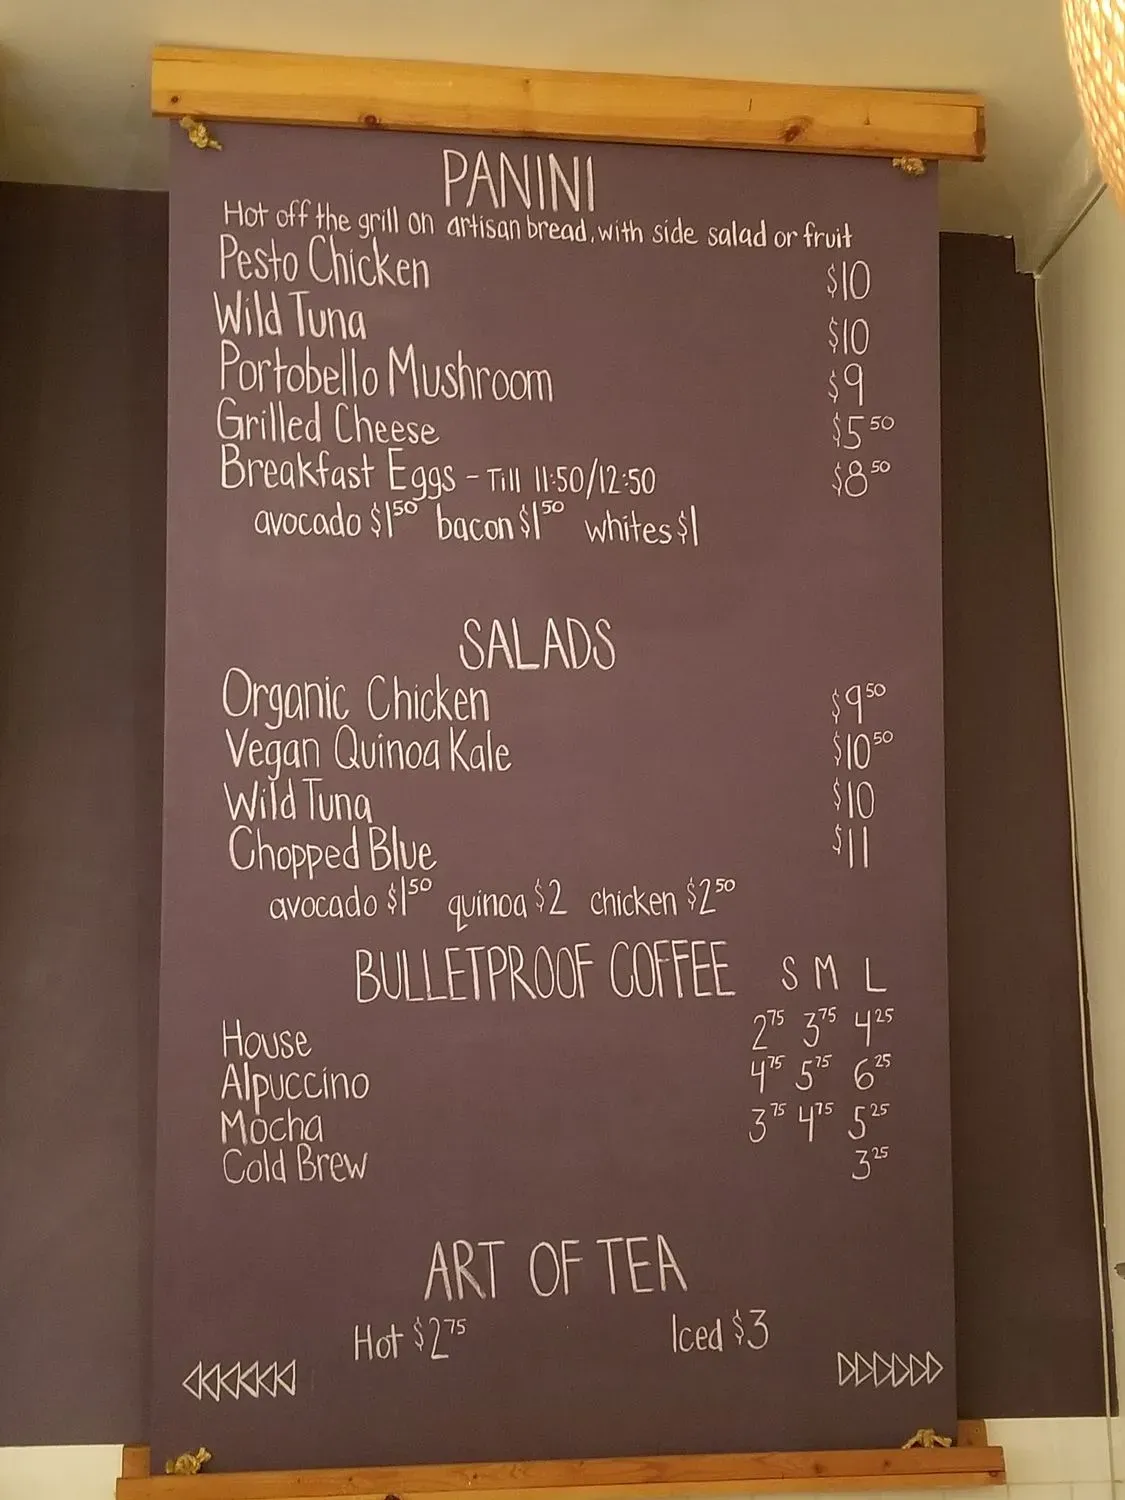 PANINI
Hot off the grill on artisan bread, with side salad or fruit
Pesto Chicken $10
Wild Tuna $10
Portobello Mushroom $9
Grilled Cheese $5 50
Breakfast Eggs - Till 11:50/12:50 $8 50
avocado $1 50 bacon $1 50 whites $1
SALADS
Organic Chicken $9 50
Vegan Quinoa Kale $10 50
Wild Tuna $10
Chopped Blue $11
avocado $1 50 quinoa $2 chicken $2 50
BULLETPROOF COFFEE S M L
House 2 75 3 75 4 25
Alpuccino 4 75 5 75 6 25
Mocha 3 75 4 75 5 25
Cold Brew 3 25
ART OF TEA
Hot $2 75 Iced $3